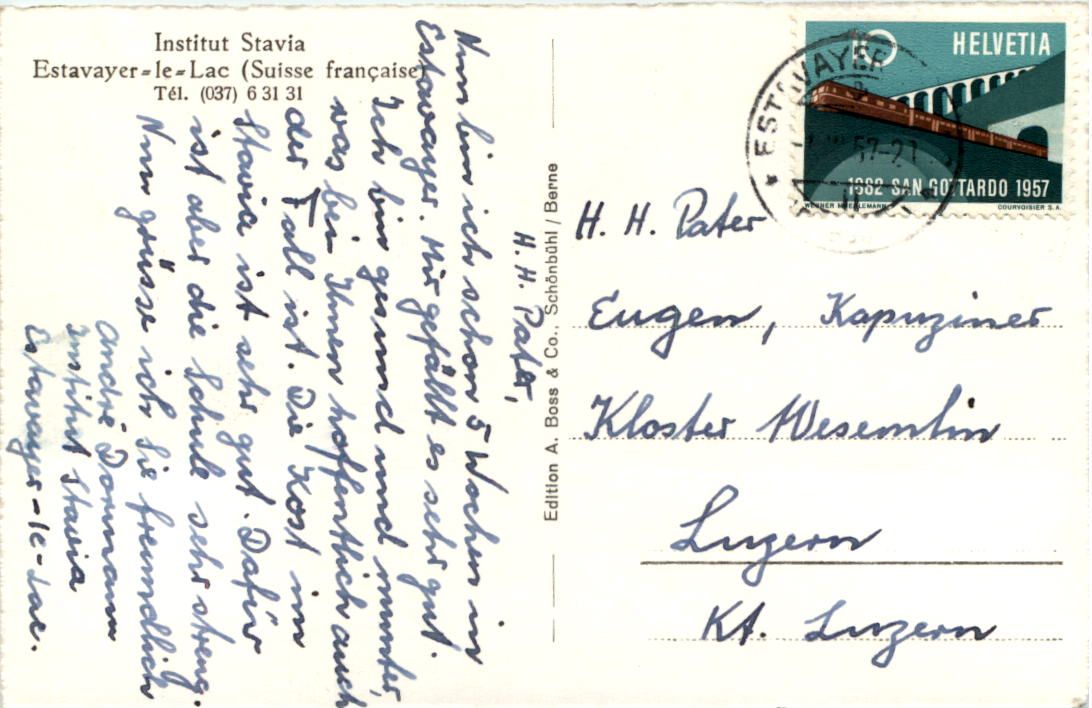 Institut Stavia
Estavayer-le-Lac (Suisse française)
Tél. (037) 6 31 31
H. H. Pater,
Nun bin ich schon 5 Wochen in
Estavayer. Mir gefällt es sehr gut.
Ich bin gesund und munter,
was bei Ihnen hoffentlich auch
der Fall ist. Die Kost im
Stavia ist sehr gut. Dafür
ist aber die Schule sehr streng.
Nun grüsse ich Sie freundlich
André Dormann
Institut Stavia
Estavayer-le-Lac.
Edition A. Boss & Co., Schönbühl / Berne
10
HELVETIA
1882 SAN GOTTARDO 1957
WERNER MUEHLEMANN
COURVOISIER S.A.
ESTAVAYER
57-21
H. H. Pater
Eugen, Kapuziner
Kloster Wesemlin
Luzern
Kt. Luzern